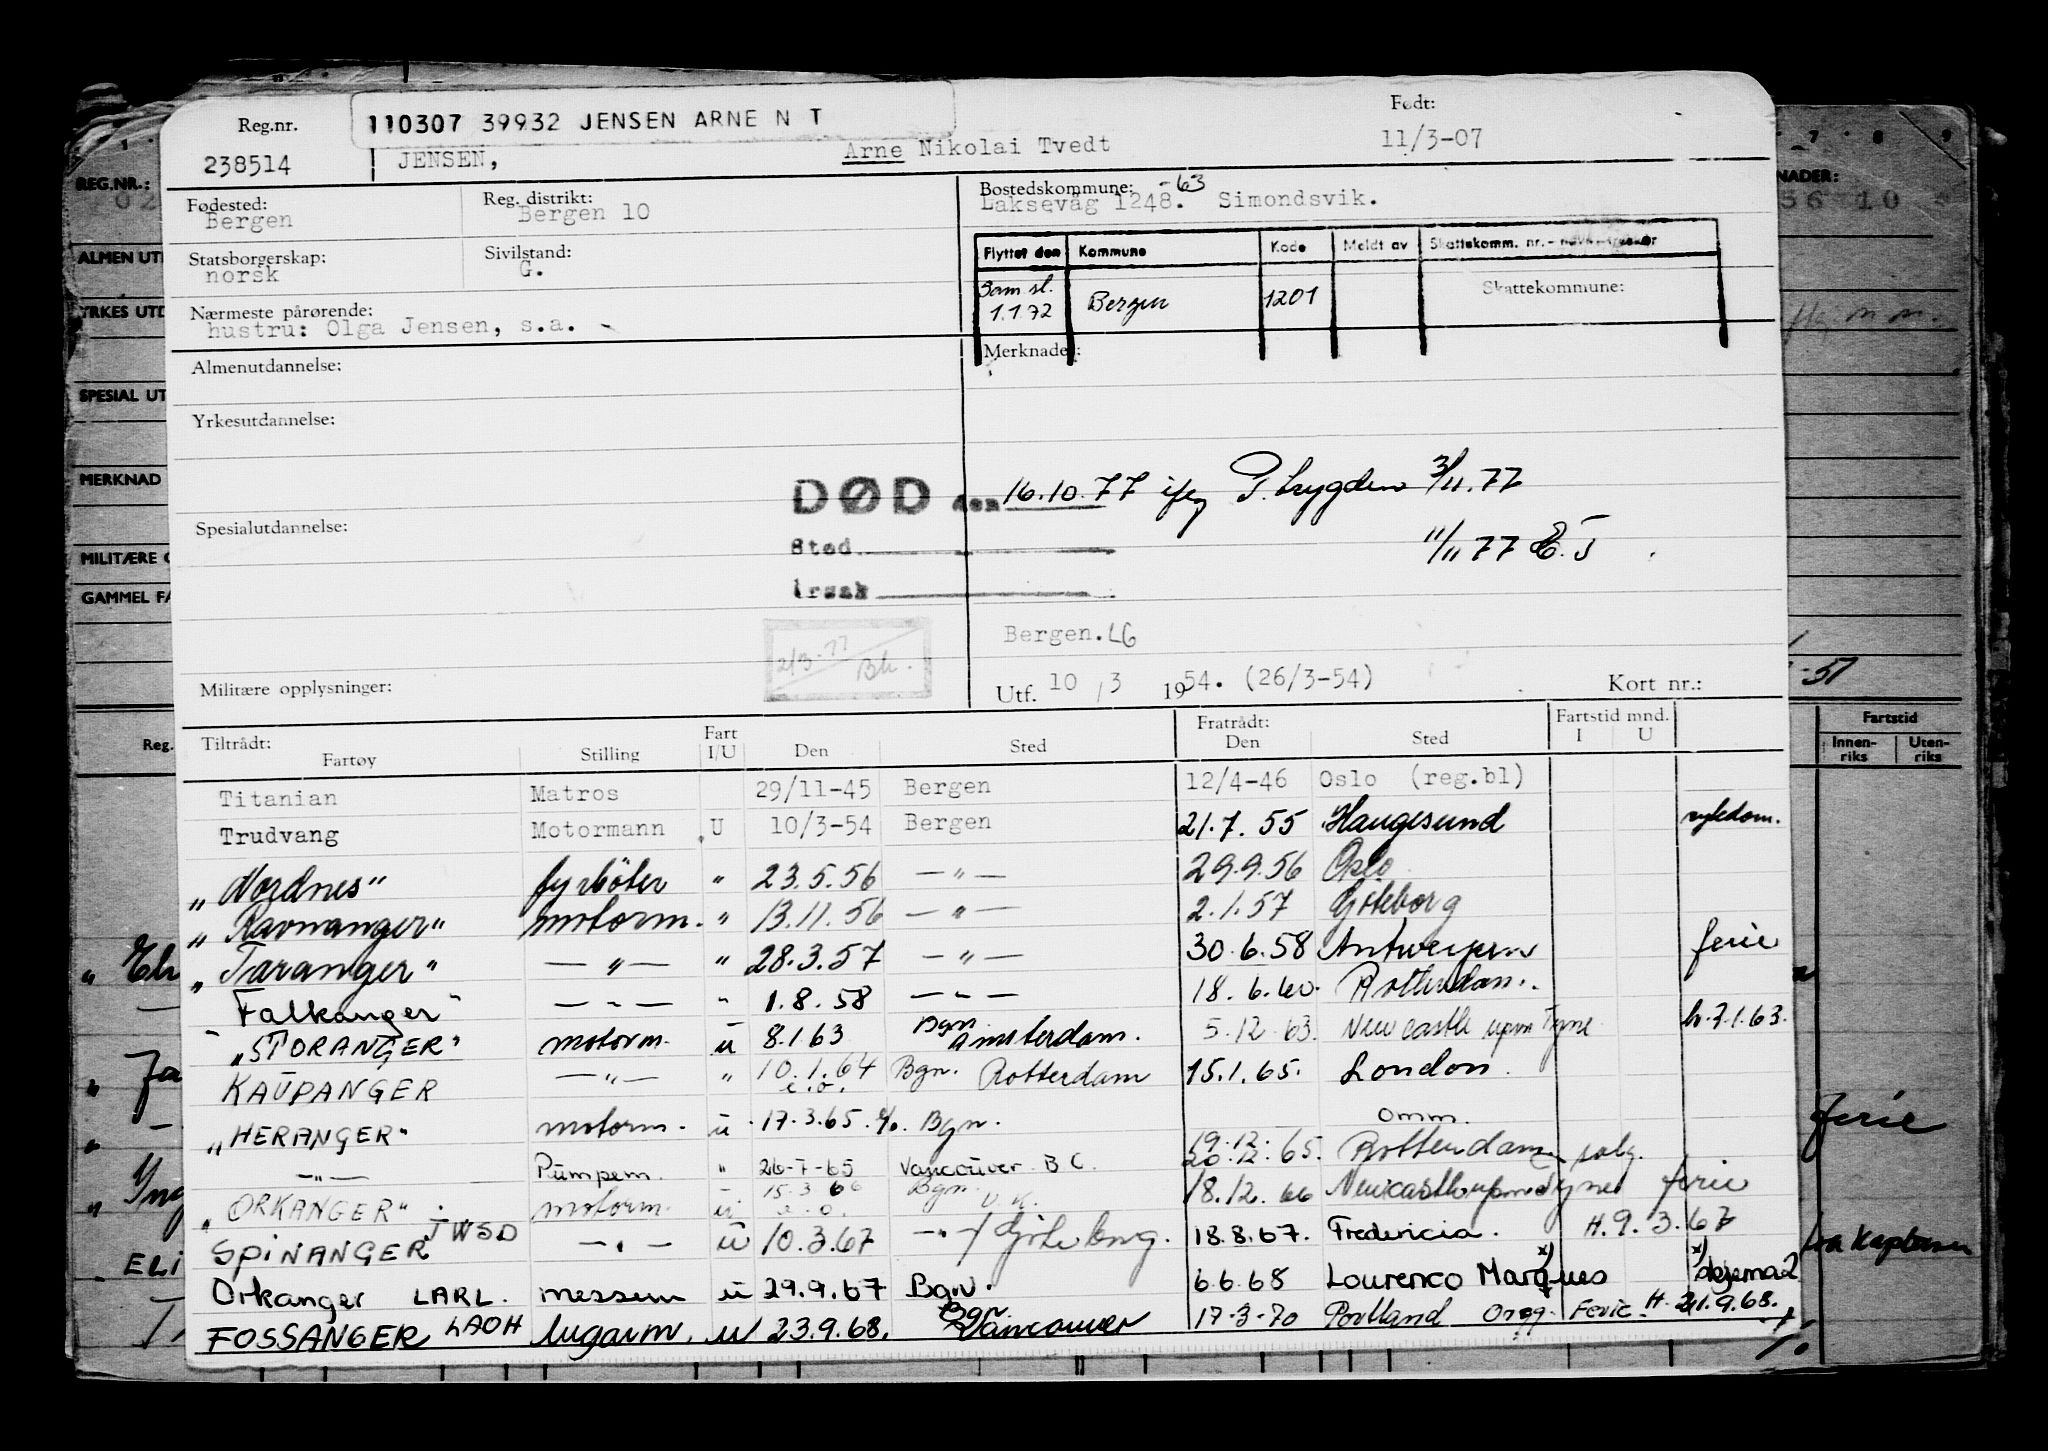 Reg.nr. 110307 39932 JENSEN ARNE N T Født:
238514 JENSEN, Arne Nikolai Tvedt 11/3-07
Fødested: Bergen Reg. distrikt: Bergen 10 Bostedskommune: -63 Laksevåg 1248. Simondsvik.
Statsborgerskap: norsk Sivilstand: G.
Flyttet den Kommune Kode Meldt av Skattekomm. nr.
Sam sl. 1.1.72 Bergen 1201 Skattekommune:
Nærmeste pårørende: hustru: Olga Jensen, s.a.
Merknader:
Almenutdannelse:
Yrkesutdannelse:
DØD den 16.10.77 ifg P. trygden 3/11.77
Spesialutdannelse:
Sted 11/11 77
Årsak
Bergen. LG
2/3-77
Militære opplysninger: Utf. 10 / 3 1954. (26/3-54) Kort nr.:
Tiltrådt: Fartøy Stilling Fart I/U Den Sted Fratrådt: Den Sted Fartstid mnd. I U
Titanian Matros 29/11-45 Bergen 12/4-46 Oslo (reg.bl)
Trudvang Motormann U 10/3-54 Bergen 21.7.55 Haugesund sykdom.
"Nordnes" fyrböter " 23.5.56 —"— 29.9.56 Oslo
"Ravnanger" motorm. " 13.11.56 —"— 2.1.57 Göteborg
"Taranger" —"— " 28.3.57 —"— 30.6.58 Antwerpen ferie
Falkanger" —"— " 1.8.58 —"— 18.6.60. Rotterdam.
"STORANGER" motorm. u 8.1.63 Bgn. Amsterdam. 5.12.63. Newcastle upon Tyne h.7.1.63.
KAUPANGER —"— " 10.1.64 e.o. Bgn. Rotterdam 15.1.65. London.
"HERANGER" motorm. u 17.3.65 e/o. Bgn. omm.
—"— Pumpem. " 26-7-65 Vancouver B C. 19.12. 20.12.65. Rotterdam salg.
"ORKANGER" motorm. u 15.3.66 e.o. Bgn. U.K. 18.12.66 Newcastle upon Tyne ferie
SPINANGER JWSD —"— u 10.3.67 —"— / Göteborg. 18.8.67. Fredericia. H.9.3.67
Orkanger LARL. messem u 29.9.67 Bgn. 6.6.68 Lourenco Marques x) x) skjema 2
FOSSANGER LAOH lugarm. u 23.9.68. Bgn. Vancouver 17-3-70 Portland Oreg. Ferie H. 21.9.68.
REG.NR.:
ALMEN UTD
YRKES UTD
SPESIAL UT
MERKNAD
MILITÆRE
GAMMEL FA
Reg.
NADER:
56 10
-51
Fartstid
Innenriks Utenriks
ferie
ELI